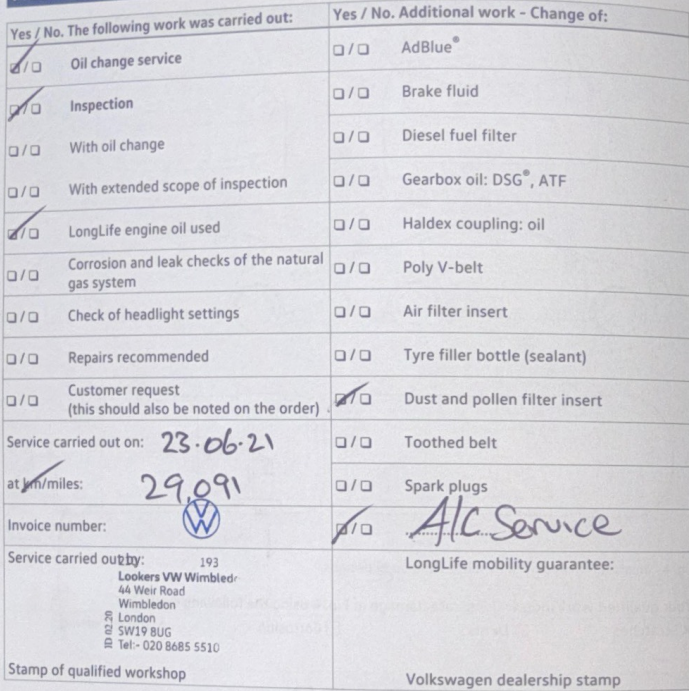 Yes / No. The following work was carried out:
☑/☐ Oil change service
☑/☐ Inspection
☐/☐ With oil change
☐/☐ With extended scope of inspection
☑/☐ LongLife engine oil used
☐/☐ Corrosion and leak checks of the natural
gas system
☐/☐ Check of headlight settings
☐/☐ Repairs recommended
☐/☐ Customer request
(this should also be noted on the order)
Service carried out on: 23.06.21
at km/miles: 29,091
Invoice number:
Service carried out by: 193
Lookers VW Wimbled
44 Weir Road
Wimbledon
London
SW19 8UG
Tel:- 020 8685 5510
ID 02.20
Stamp of qualified workshop
Yes / No. Additional work - Change of:
☐/☐ AdBlue®
☐/☐ Brake fluid
☐/☐ Diesel fuel filter
☐/☐ Gearbox oil: DSG®, ATF
☐/☐ Haldex coupling: oil
☐/☐ Poly V-belt
☐/☐ Air filter insert
☐/☐ Tyre filler bottle (sealant)
☑/☐ Dust and pollen filter insert
☐/☐ Toothed belt
☐/☐ Spark plugs
☑/☐ A/C Service
LongLife mobility guarantee:
Volkswagen dealership stamp